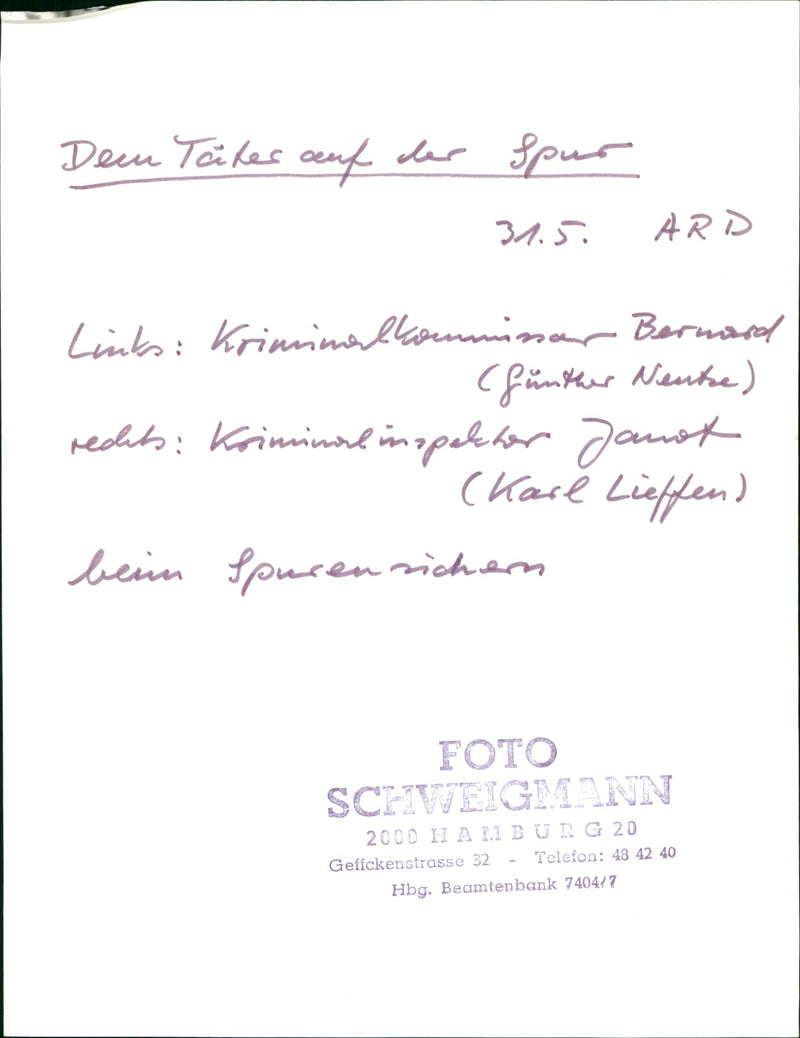 Dem Täter auf der Spur
31.5. ARD
Links: Kriminalkommissar Bernard
(Günther Neutze)
rechts: Kriminalinspektor Janot
(Karl Lieffen)
beim Spurensichern
FOTO
SCHWEIGMANN
2000 HAMBURG 20
Geffckenstrasse 32 - Telefon: 48 42 40
Hbg. Beamtenbank 7404/7